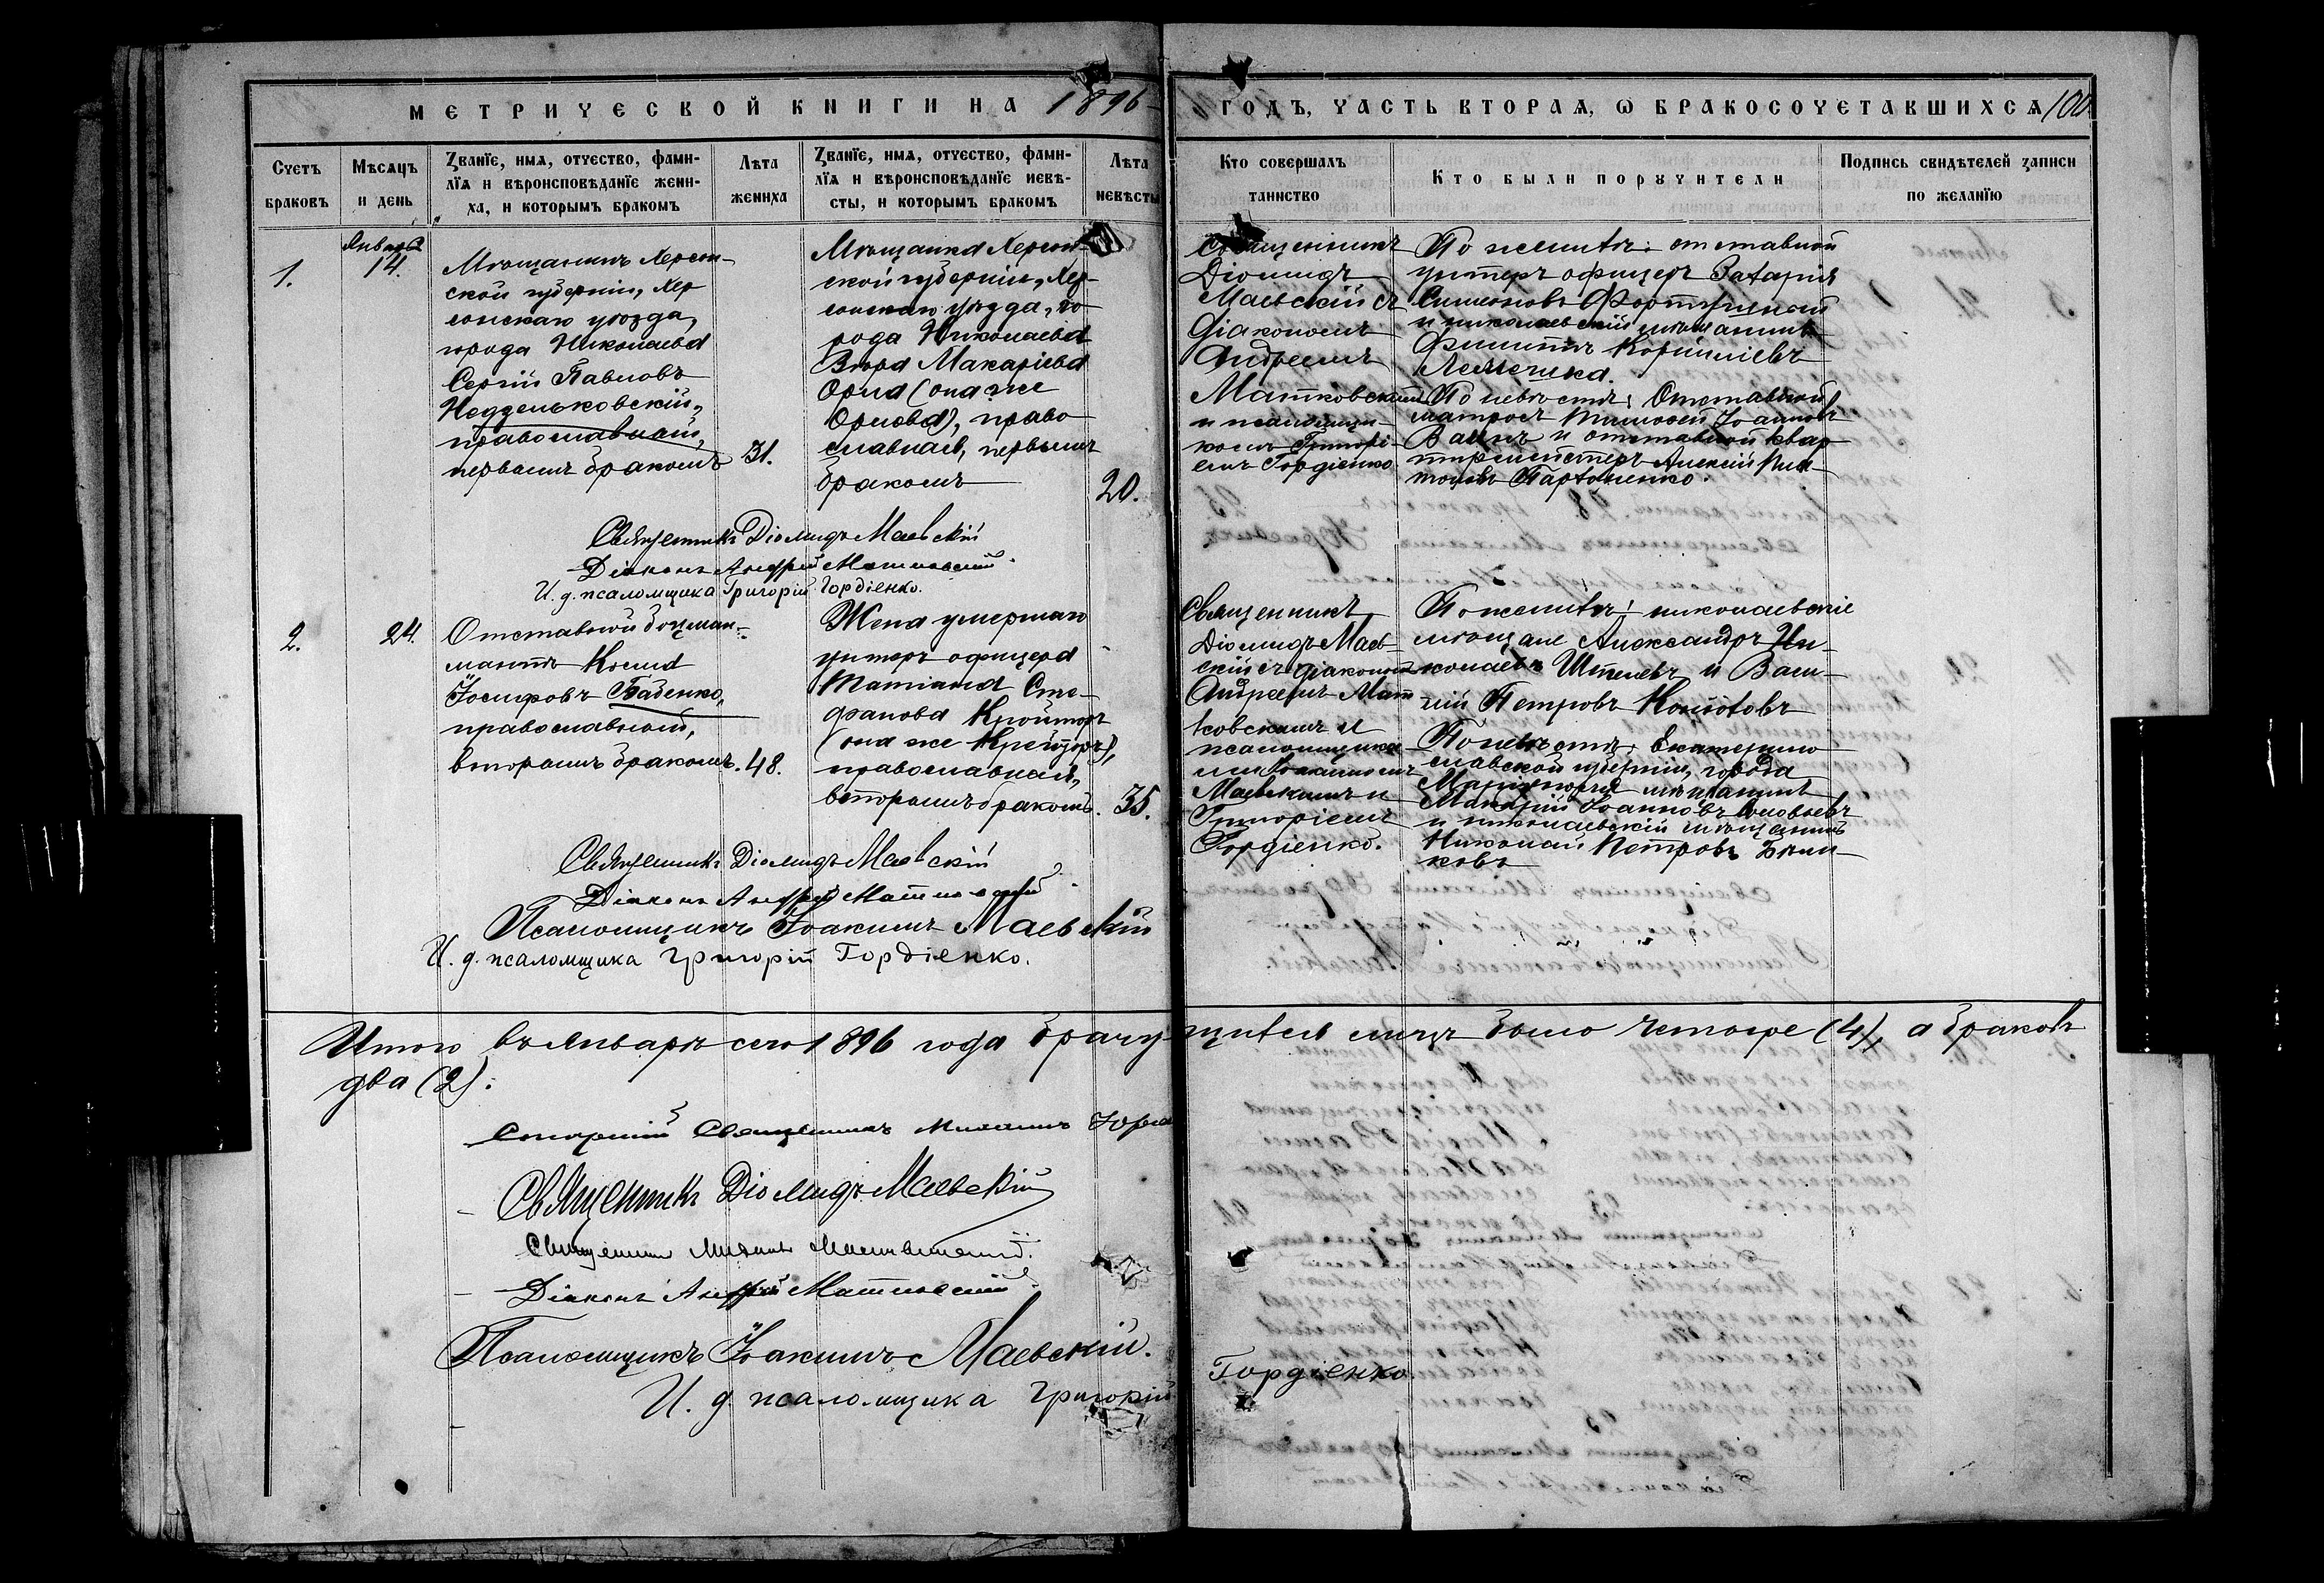 МЕТРИЧЕСКОЙ КНИГИ НА 1896
ГОДЪ, ЧАСТЬ ВТОРАѦ, Ѡ БРАКОСОЧЕТАВШИХСѦ 100
Счетъ браковъ
Мѣсѧцъ и день
Званїе, имѧ, отчество, фами-
лїѧ и вѣроисповѣданїе жени-
ха, и которымъ бракомъ
Лѣта жениха
Званїе, имѧ, отчество, фами-
лїѧ и вѣроисповѣданїе невѣ-
сты, и которымъ бракомъ
Лѣта невѣсты
Кто совершалъ
таинство
Кто были поручители
Подпись свидѣтелей записи
по желанїю
1.
Января
14.
Мѣщанинъ Херсон-
ской губерніи, Хер
сонскаго уѣзда,
города Николаева
Сергій Павловъ
Недзельковскій,
православный,
первымъ бракомъ
31.
Мѣщанка Херсон-
ской губерніи, Хер-
сонскаго уѣзда, го
рода Николаева
Вѣра Макаріева
Орла (она же
Орлова), право
славная, первымъ
бракомъ
20.
Священникъ
Діомидъ
Маевскій съ
діакономъ
Андреемъ
Матковскимъ
и псаломщи-
комъ Григорі-
емъ Гордіенко
По женихѣ: отставной
унтеръ офицеръ Захарія
Симеоновъ Фортунный
и николаевскій мѣщанинъ
Филиппъ Корниліевъ
Лемешка.
По невѣстѣ: Отставной
матросъ Тимофей Іоанновъ
и отставной квар
тирмейстеръ Алексій
Пархоменко.
Священникъ Діомидъ Маевскій
Діаконъ Андрей Матковскій
И. д. псаломщика Григорій Гордіенко.
2.
24.
Отставной боцман-
матъ Косма
Іосифовъ Баденко,
православный,
вторымъ бракомъ.
48.
Жена умершаго
унтеръ офицера
Татіана Сте-
фанова Кройторъ
(она же Крейторъ),
православная,
вторымъ бракомъ.
35.
Священникъ
Діомидъ Маев-
скій съ діакономъ
Андреемъ Мат-
ковскимъ и
псаломщика-
ми Іоакимомъ
Маевскимъ и
Григоріемъ
Гордіенко.
По женихѣ: николаевскіе
мѣщане Александръ Ни-
колаевъ Штелевъ и Васи-
лій Петровъ Колотовъ
По невѣстѣ: Екатерино
славской губерніи, города
Маріуполя мѣщанинъ
Макарій Іоанновъ Соловьевъ
и николаевскій мѣщанинъ
Николай Петровъ Бѣли-
ковъ
Священникъ Діомидъ Маевскій
Діаконъ Андрей Матковскій
Псаломщикъ Іоакимъ Маевскій
И. д. псаломщика Григорій Гордіенко.
Итого въ Январѣ сего 1896 года брачу-
щихся лицъ было четыре (4), а браковъ
два (2).
Старшій Священникъ Михаилъ
Священникъ Діомидъ Маевскій
Священникъ Михаилъ
Діаконъ Андрей Матковскій
Псаломщикъ Іоакимъ Маевскій.
И. д. псаломщика Григорій Гордіенко